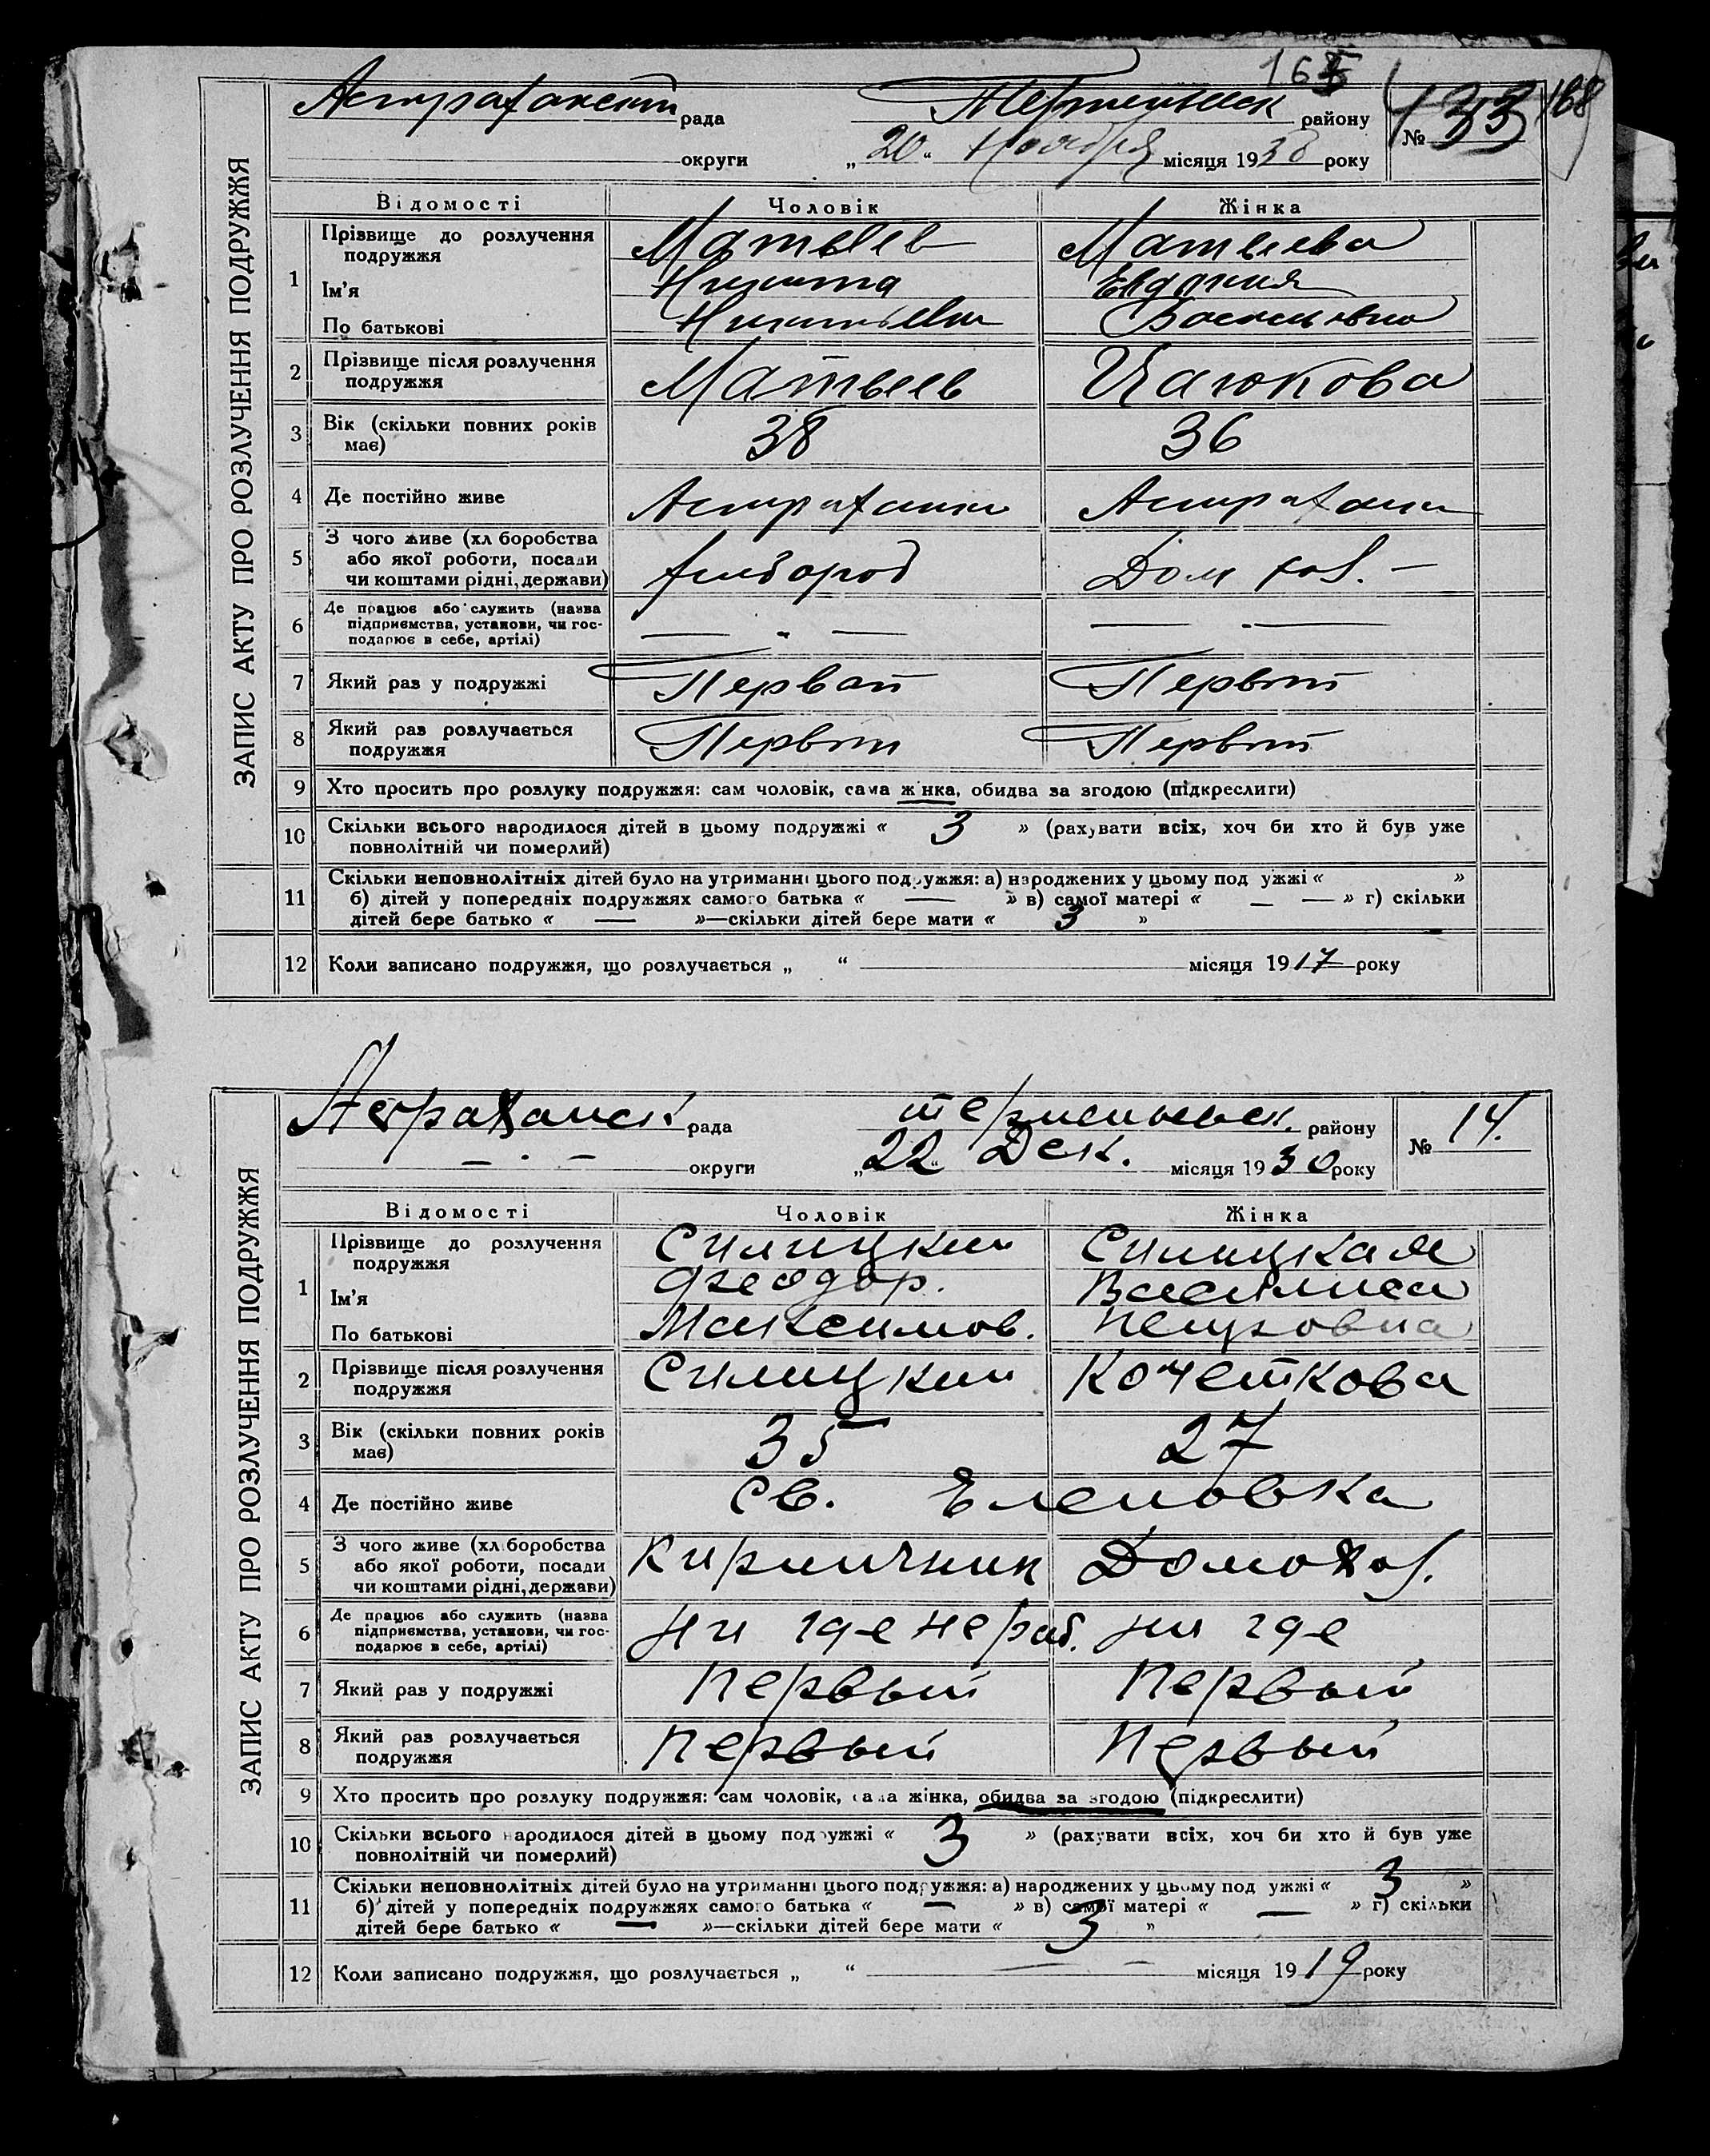 165
168
Астраханск рада
района Терпеньевск району
№ 133
округи „20“ Ноября місяця 1930 року
ЗАПИС АКТУ ПРО РОЗЛУЧЕННЯ ПОДРУЖЖЯ
Відомості Чоловік Жінка
1 Прізвище до розлучення подружжя Матвеев Матвеева
Ім’я Никита Евдокия
По батькові Никитьевич Васильевна
2 Прізвище після розлучення
подружжя Матвеев
3 Вік (скільки повних років 38 36
має)
4 Де постійно живе Астраханка Астраханка
5 З чого живе (хліборобства
або якої роботи, посади хлебороб Дом хоз. —
чи коштами рідні, держави)
6 Де працює або служить (назва
підприємства, установи, чи гос-
подарює в себе, артілі)
7 Який раз у подружжі Первый Первый
8 Який раз розлучається Первый Первый
подружжя
9 Хто просить про розлуку подружжя: сам чоловік, сама жінка, обидва за згодою (підкреслити)
10 Скільки всього народилося дітей в цьому подружжі « 3 » (рахувати всіх, хоч би хто й був уже
повнолітній чи померлий)
11 Скільки неповнолітніх дітей було на утриманні цього подружжя: а) народжених у цьому подружжі « »
б) дітей у попередніх подружжях самого батька « — » в) самої матері « — — » г) скільки
дітей бере батько « — »—скільки дітей бере мати « 3 »
12 Коли записано подружжя, що розлучається „ “ місяця 1917 року
Астраханск рада терпеньевск. району
№ 14.
— . — округи „22“ Дек. місяця 1930 року
ЗАПИС АКТУ ПРО РОЗЛУЧЕННЯ ПОДРУЖЖЯ
Відомості Чоловік Жінка
1 Прізвище до розлучення Силицкий Силицкая
подружжя
Ім’я Феодор. Василиса
По батькові Максимов. Петровна
2 Прізвище після розлучення Силицкий Кочеткова
подружжя
3 Вік (скільки повних років 35 27
має)
4 Де постійно живе св. Еленовка
5 З чого живе (хліборобства
або якої роботи, посади Кирпичник Домохоз.
чи коштами рідні, держави)
6 Де працює або служить (назва
підприємства, установи, чи гос- ни где не раб. ни где
подарює в себе, артілі)
7 Який раз у подружжі Первый Первый
8 Який раз розлучається Первый Первый
подружжя
9 Хто просить про розлуку подружжя: сам чоловік, сама жінка, обидва за згодою (підкреслити)
10 Скільки всього народилося дітей в цьому подружжі « 3 » (рахувати всіх, хоч би хто й був уже
повнолітній чи померлий)
11 Скільки неповнолітніх дітей було на утриманні цього подружжя: а) народжених у цьому подружжі « 3 »
б) дітей у попередніх подружжях самого батька « — » в) самої матері « — » г) скільки
дітей бере батько « — »—скільки дітей бере мати « 3 »
12 Коли записано подружжя, що розлучається „ “ — — місяця 1919 року